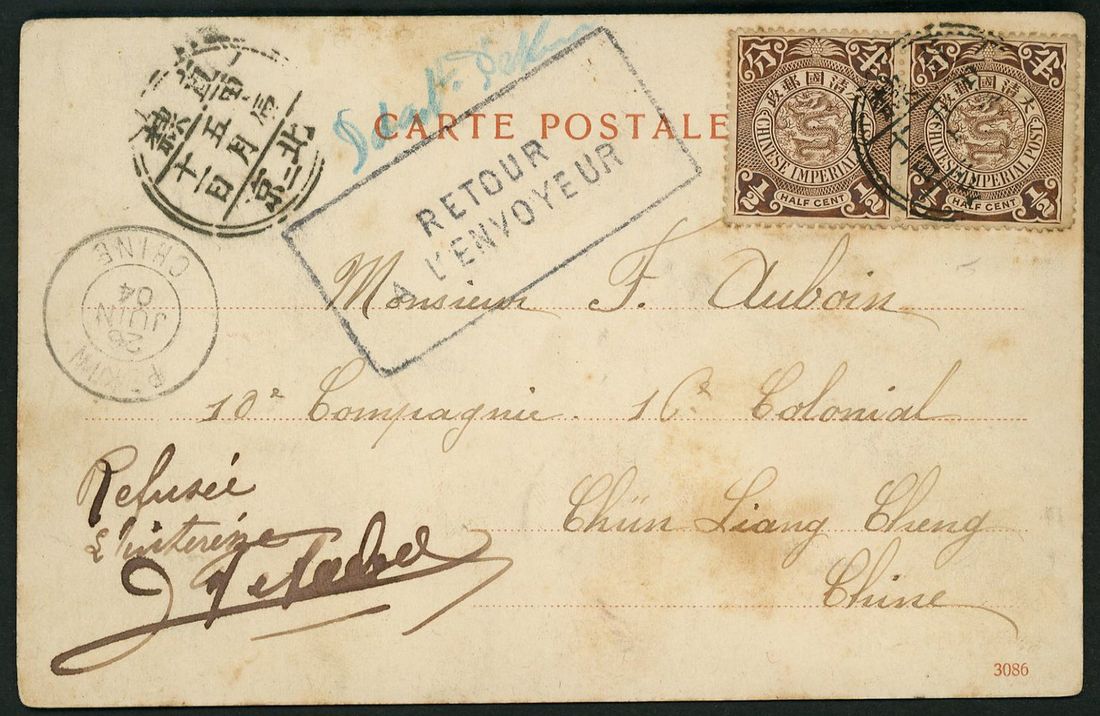 CARTE POSTALE
RETOUR
A L'ENVOYEUR
大清國郵政
半 分
CHINESE IMPERIAL POST
½ HALF CENT ½
大清國郵政
半 分
CHINESE IMPERIAL POST
½ HALF CENT ½
北京
五月
十 日
CHINE
28
JUIN
04
Monsieur F. Auboin
10e Compagnie. 16e Colonial
Chün Liang Cheng
Chine
Refusée
3086